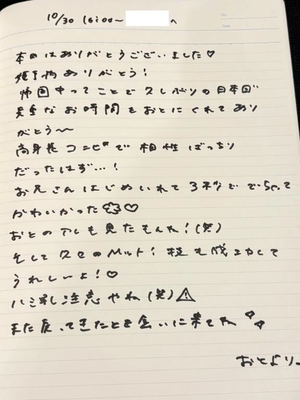 10/30 16:00〜 へ
本日はありがとうございました♡
ありがとう!
帰国中ってことで久しぶりの日本で
なお時間をおとにくれてあり
がとう〜
高身長コンビで相性ばっちり
だったはず…!
お兄さんはじめいれて3秒で
かわいかった♡
おとの も見たもんね!(笑)
そして のマット! も成功して
うれしーよ!♡
ハミ 注意やね(笑)⚠
また戻ってきたとき会いに来てね
おとより